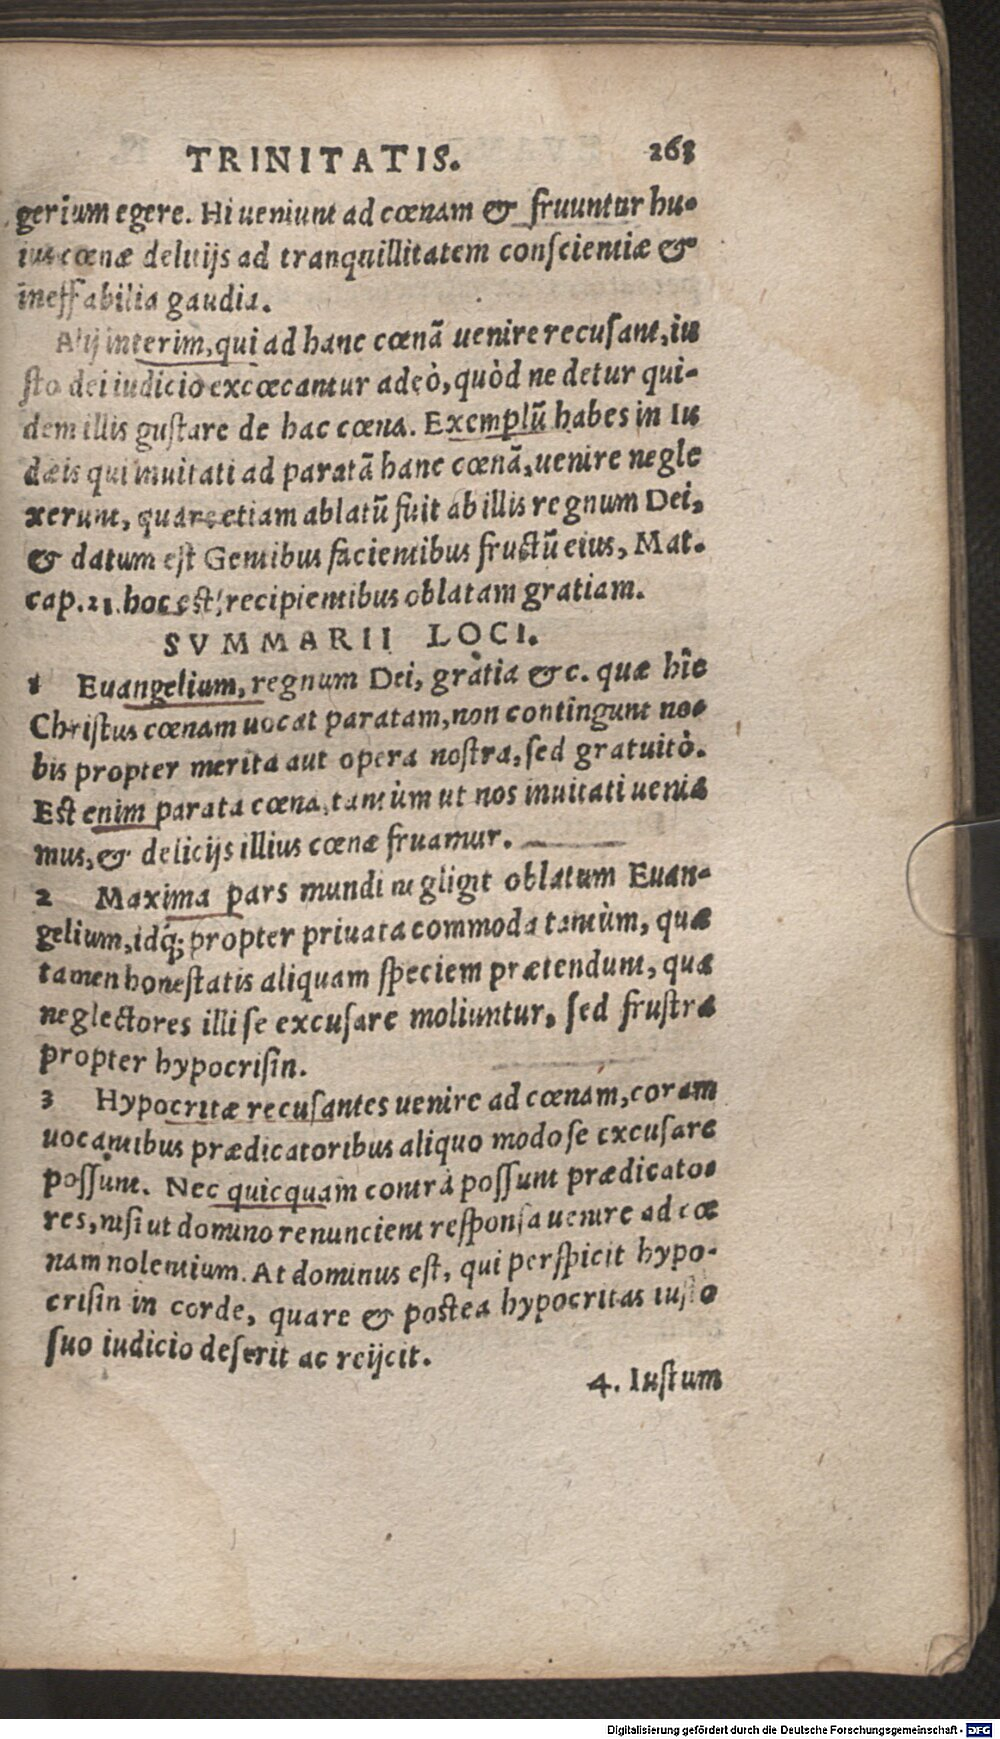 TRINITATIS. 263
gerium egere. Hi ueniunt ad cœnam & fruuntur hu-
ius cœnæ delitijs ad tranquillitatem conſcientiæ &
ineffabilia gaudia.
Alij interim, qui ad hanc cœnā uenire recuſant, iu
ſto dei iudicio excœcantur adeò, quòd ne detur qui-
dem illis guſtare de hac cœna. Exemplū habes in Iu
dæis qui inuitati ad paratā hanc cœnā, uenire negle
xerunt, quare etiam ablatū fuit ab illis regnum Dei,
& datum eſt Gentibus facientibus fructū eius, Mat.
cap. 21. hoc eſt, recipientibus oblatam gratiam.
SVMMARII LOCI.
1 Euangelium, regnum Dei, gratia &c. quæ hîc
Chriſtus cœnam uocat paratam, non contingunt no-
bis propter merita aut opera noſtra, ſed gratuitò.
Eſt enim parata cœna, tantùm ut nos inuitati uenia
mus, & delicijs illius cœnæ fruamur.
2 Maxima pars mundi negligit oblatum Euan-
gelium, idq́; propter priuata commoda tantùm, quæ
tamen honeſtatis aliquam ſpeciem prætendunt, quæ
neglectores illi ſe excuſare moliuntur, ſed fruſtra
propter hypocriſin.
3 Hypocritæ recuſantes uenire ad cœnam, coram
uocantibus prædicatoribus aliquo modo ſe excuſare
poſſunt. Nec quicquam contrà poſſunt prædicato-
res, niſi ut domino renuncient reſponſa uenire ad cœ
nam nolentium. At dominus eſt, qui perſpicit hypo-
criſin in corde, quare & poſtea hypocritas iuſto
ſuo iudicio deſerit ac reijcit.
4. Iuſtum
Digitalisierung gefördert durch die Deutsche Forschungsgemeinschaft - DFG